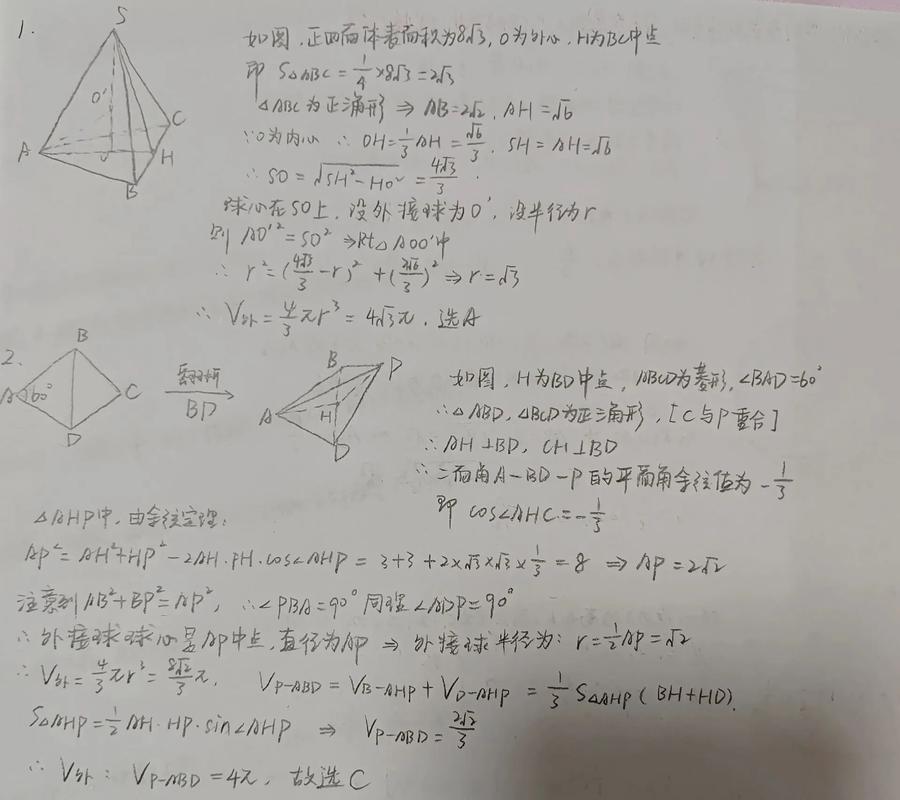 1.
S
O'
A
C
H
O
B
如图,正四面体表面积为8√3,O为外心,H为BC中点
即 S△ABC = 1/4 × 8√3 = 2√3
△ABC为正三角形 ⇒ AB=2√2, AH=√6
∵O为内心 ∴ OH = 1/3 AH = √6/3, SH = AH = √6
∴ SO = √(SH²-HO²) = 4√3/3
球心在SO上,设外接球为O',设半径为r
则 AO'² = SO² ⇒ Rt△AOO'中
∴ r² = (4√3/3 - r)² + (2√6/3)² ⇒ r=√3
∴ V外 = 4/3 πr³ = 4√3π. 选A
2.
B
A 60° C
D
翻折
BD
B P
A H
D
如图,H为BD中点,ABCD为菱形,∠BAD=60°
∴△ABD,△BCD为正三角形,[C与P重合]
∴AH⊥BD, CH⊥BD
∴二面角A-BD-P的平面角余弦值为-1/3
即 cos∠AHC = -1/3
△AHP中,由余弦定理:
AP² = AH²+HP²-2AH·PH·cos∠AHP = 3+3+2×√3×√3×1/3 = 8 ⇒ AP=2√2
注意到AB²+BP²=AP², ∴∠PBA=90° 同理∠ADP=90°
∴外接球球心是AP中点,直径为AP ⇒ 外接球半径为: r=1/2 AP=√2
∴ V外 = 4/3 πr³ = 8√2/3 π. V P-ABD = V B-AHP + V D-AHP = 1/3 S△AHP (BH+HD).
S△AHP = 1/2 AH·HP·sin∠AHP ⇒ V P-ABD = 2√2/3
∴ V外 : V P-ABD = 4π, 故选C